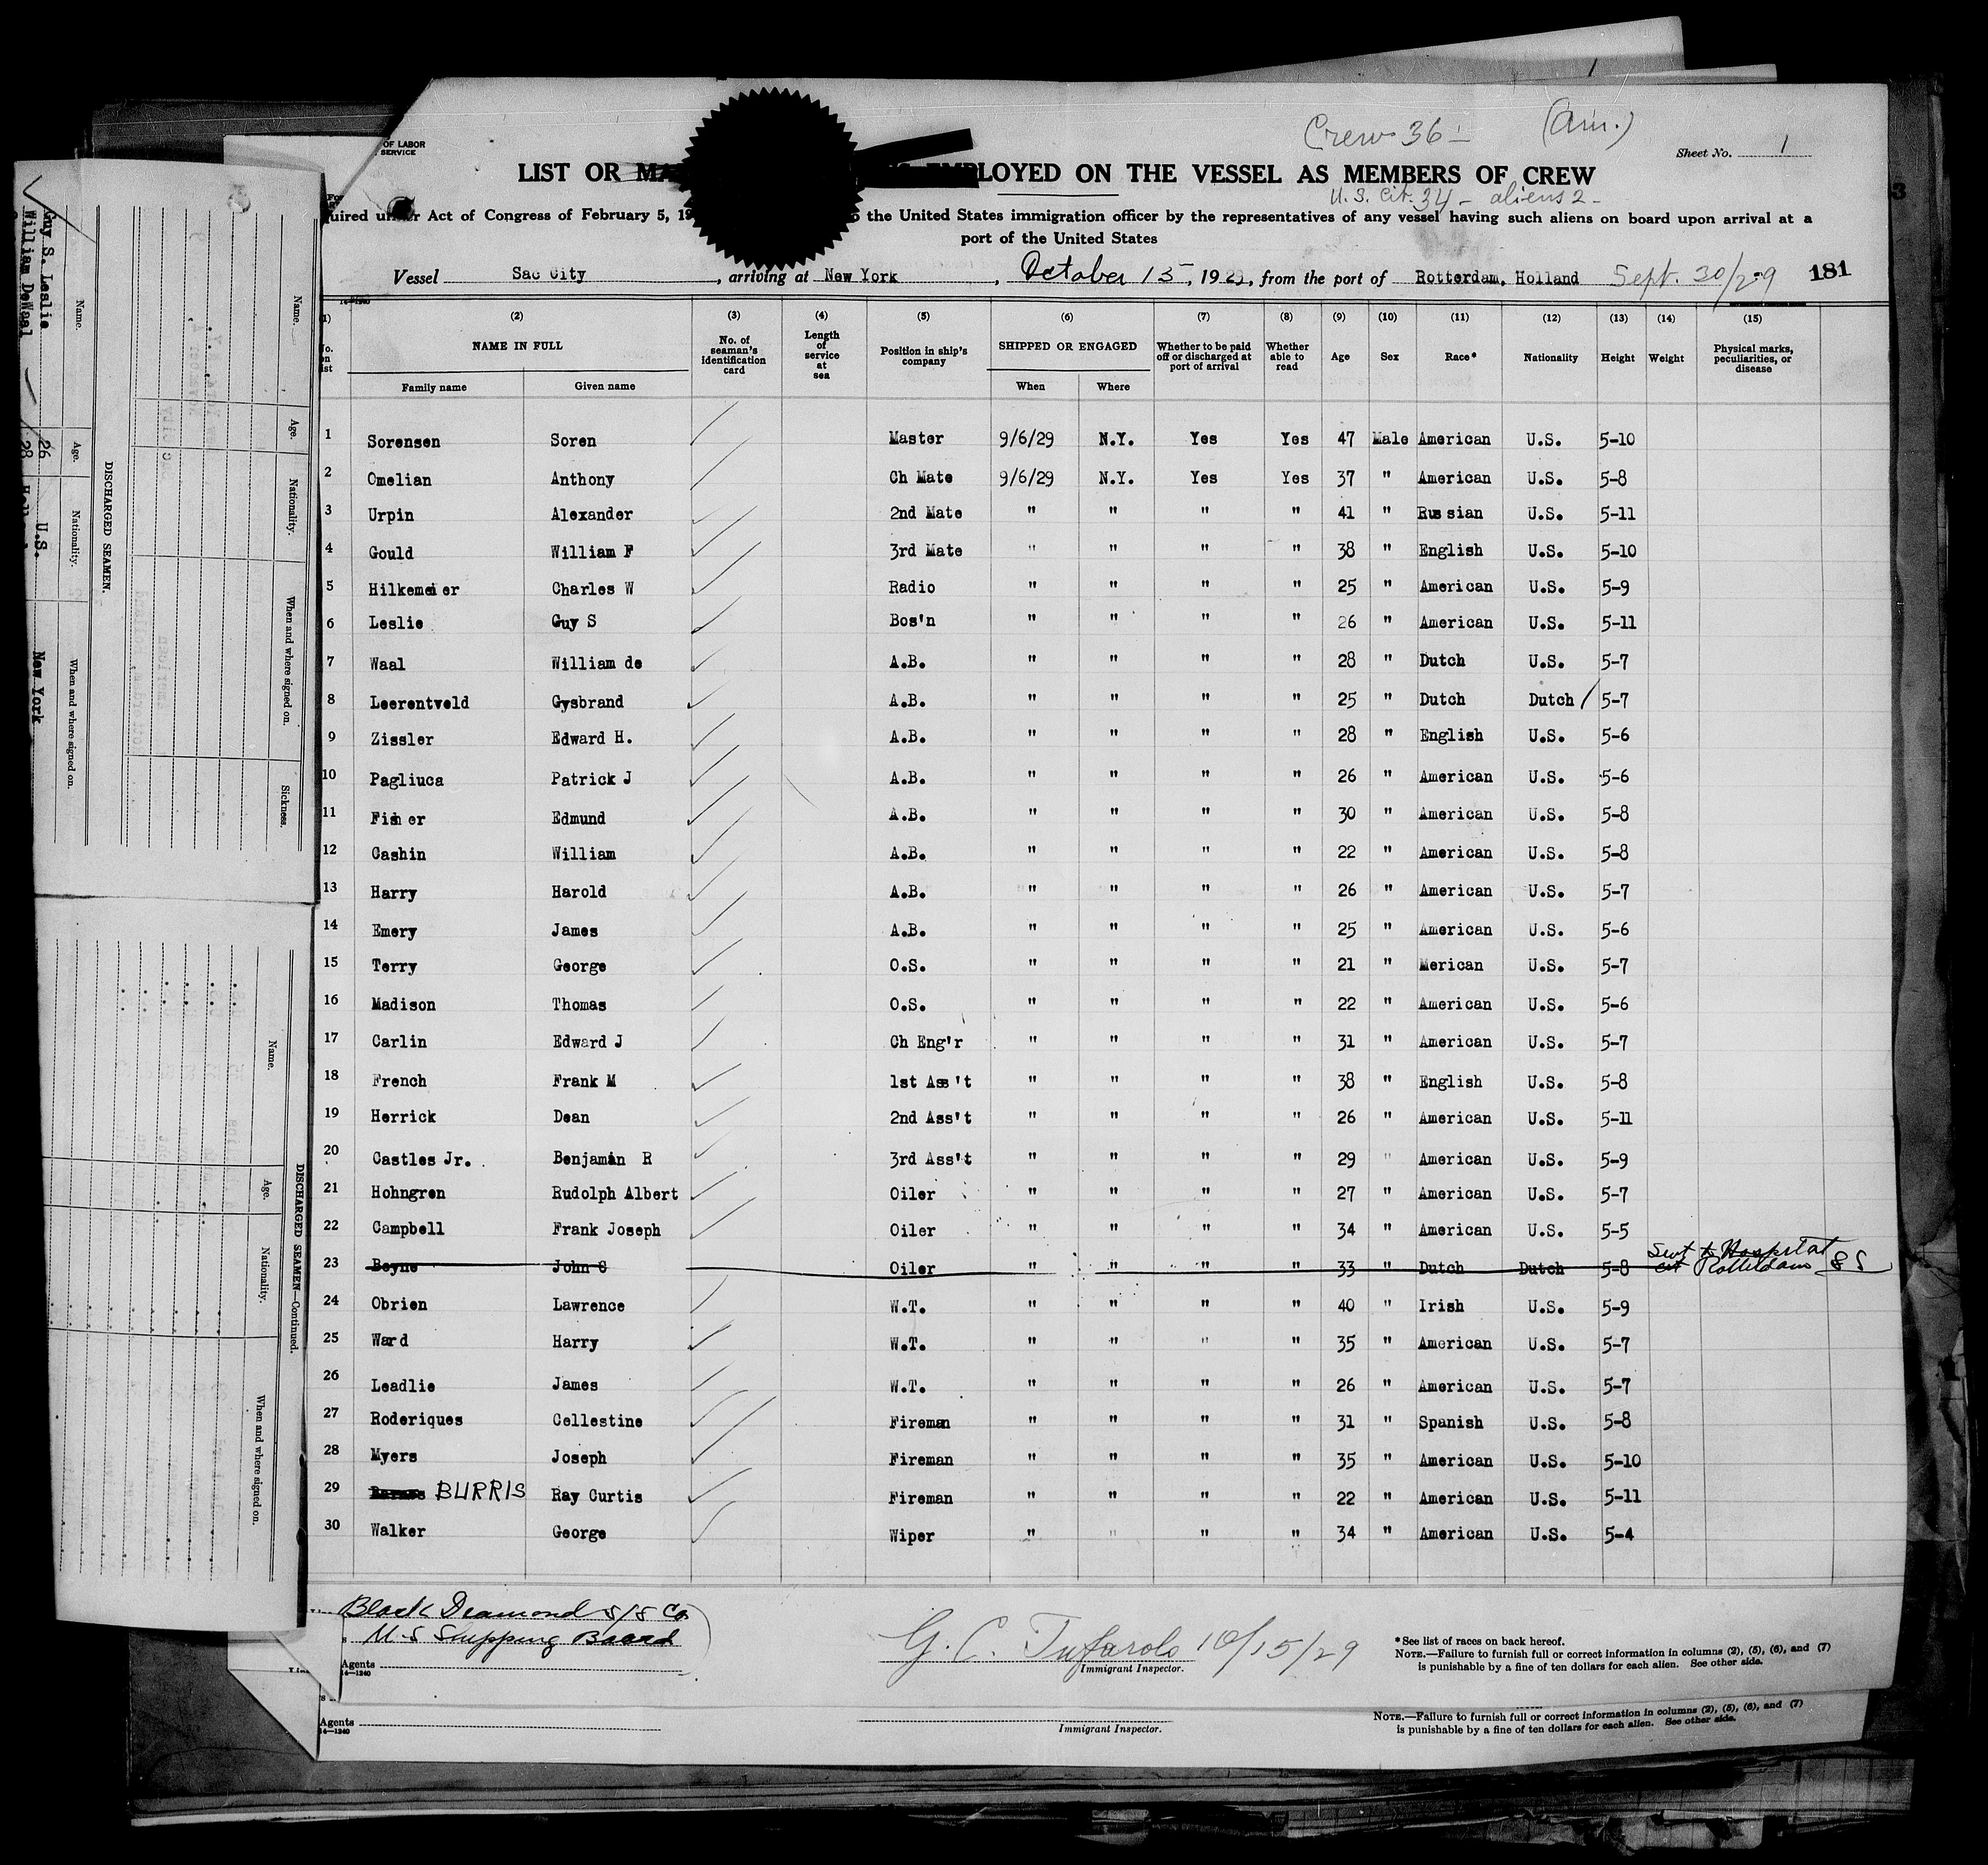 Crew 36 – (Am.)
OF LABOR
SERVICE
Sheet No. 1
LIST OR MA EMPLOYED ON THE VESSEL AS MEMBERS OF CREW
U.S. Cit. 34 – aliens 2 –
quired under Act of Congress of February 5, 19 the United States immigration officer by the representatives of any vessel having such aliens on board upon arrival at a
port of the United States
Vessel Sac City, arriving at New York, October 15, 1929, from the port of Rotterdam, Holland Sept. 30/29 181
14—1240
(1) (2) (3) (4) (5) (6) (7) (8) (9) (10) (11) (12) (13) (14) (15)
No. on list NAME IN FULL Family name Given name No. of seaman's identification card Length of service at sea Position in ship's company SHIPPED OR ENGAGED When Where Whether to be paid off or discharged at port of arrival Whether able to read Age Sex Race* Nationality Height Weight Physical marks, peculiarities, or disease
1 Sorensen Soren Master 9/6/29 N.Y. Yes Yes 47 Male American U.S. 5-10
2 Omelian Anthony Ch Mate 9/6/29 N.Y. Yes Yes 37 " American U.S. 5-8
3 Urpin Alexander 2nd Mate " " " " 41 " Russian U.S. 5-11
4 Gould William F 3rd Mate " " " " 38 " English U.S. 5-10
5 Hilkemeier Charles W Radio " " " " 25 " American U.S. 5-9
6 Leslie Guy S Bos'n " " " " 26 " American U.S. 5-11
7 Waal William de A.B. " " " " 28 " Dutch U.S. 5-7
8 Leerentveld Gysbrand A.B. " " " " 25 " Dutch Dutch / 5-7
9 Zissler Edward H. A.B. " " " " 28 " English U.S. 5-6
10 Pagliuca Patrick J A.B. " " " " 26 " American U.S. 5-6
11 Fisher Edmund A.B. " " " " 30 " American U.S. 5-8
12 Cashin William A.B. " " " " 22 " American U.S. 5-8
13 Harry Harold A.B. " " " " 26 " American U.S. 5-7
14 Emery James A.B. " " " " 25 " American U.S. 5-6
15 Terry George O.S. " " " " 21 " Merican U.S. 5-7
16 Madison Thomas O.S. " " " " 22 " American U.S. 5-6
17 Carlin Edward J Ch Eng'r " " " " 31 " American U.S. 5-7
18 French Frank M 1st Ass't " " " " 38 " English U.S. 5-8
19 Herrick Dean 2nd Ass't " " " " 26 " American U.S. 5-11
20 Castles Jr. Benjamin R 3rd Ass't " " " " 29 " American U.S. 5-9
21 Hohngren Rudolph Albert Oiler " " " " 27 " American U.S. 5-7
22 Campbell Frank Joseph Oiler " " " " 34 " American U.S. 5-5
23 Boyne John S Oiler " " " " 33 " Dutch Dutch 5-8 Sent to Hospital at Rotterdam SS
24 Obrien Lawrence W.T. " " " " 40 " Irish U.S. 5-9
25 Ward Harry W.T. " " " " 35 " American U.S. 5-7
26 Leadlie James W.T. " " " " 26 " American U.S. 5-7
27 Roderiques Cellestine Fireman " " " " 31 " Spanish U.S. 5-8
28 Myers Joseph Fireman " " " " 35 " American U.S. 5-10
29 BURRIS Ray Curtis Fireman " " " " 22 " American U.S. 5-11
30 Walker George Wiper " " " " 34 " American U.S. 5-4
Black Diamond S/S Co
U.S Shipping Board
Agents
14—1240
G. C. Tuffarolo 10/15/29
Immigrant Inspector.
*See list of races on back hereof.
NOTE.—Failure to furnish full or correct information in columns (2), (5), (6), and (7)
is punishable by a fine of ten dollars for each alien. See other side.
Agents
14—1240
Immigrant Inspector.
NOTE.—Failure to furnish full or correct information in columns (2), (5), (6), and (7)
is punishable by a fine of ten dollars for each alien. See other side.
DISCHARGED SEAMEN.
Name. Age. Nationality. When and where signed on. Sickness.
Name. Age. Nationality. When and where signed on.
Guy S. Leslie 26 U.S. New York
William DeWaal 28
DISCHARGED SEAMEN—Continued.
Name. Age. Nationality. When and where signed on.